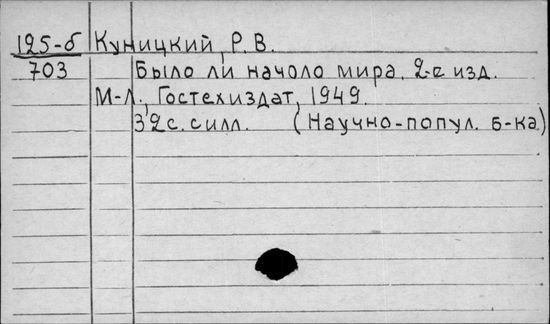 125-б Куницкий, Р. В.
703 Было ли начоло мира. 2-е изд.
М-Л., Гостехиздат, 1949.
32 с. с илл. (Научно-попул. б-ка)